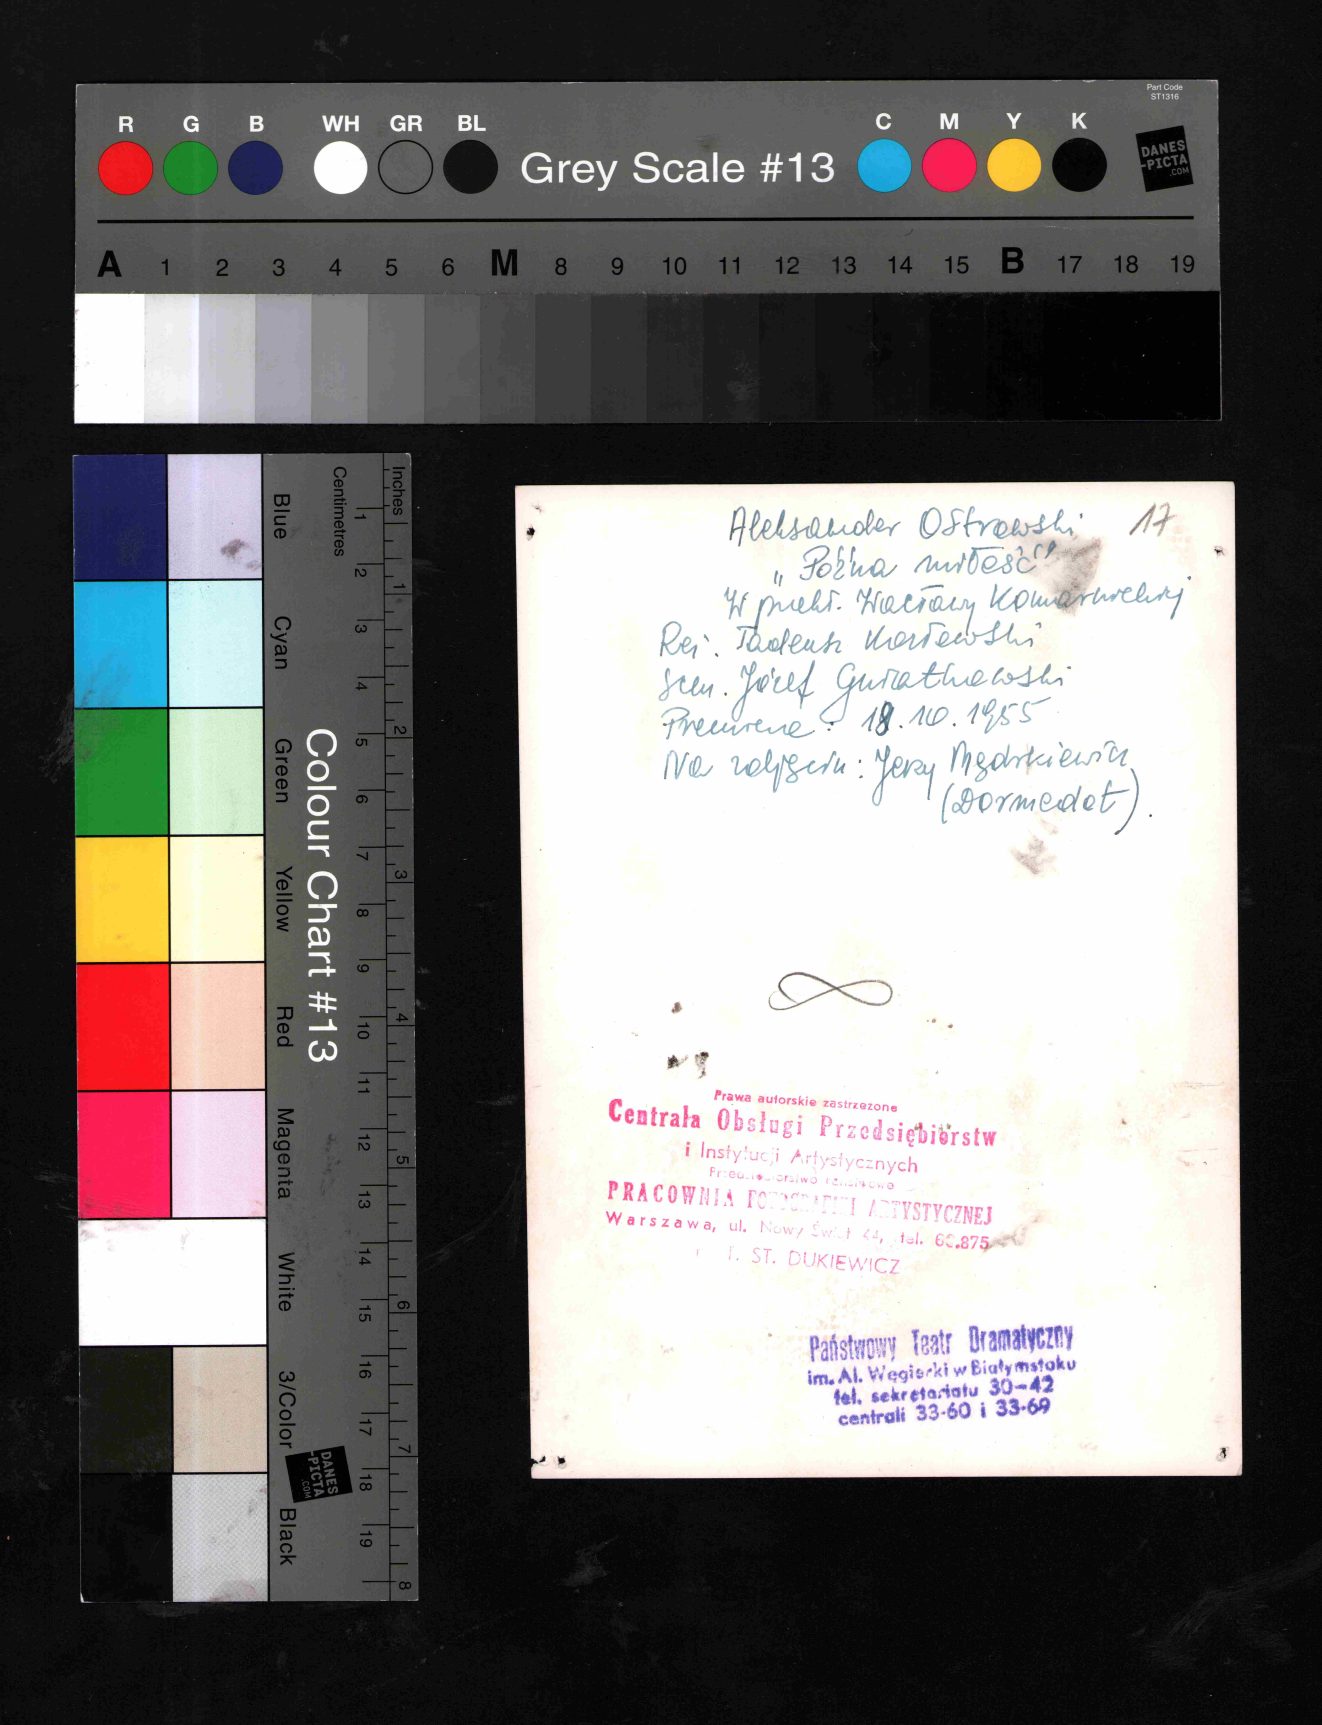 Part Code
ST1316
R G B WH GR BL
C M Y K
Grey Scale #13
DANES
-PICTA
.COM
A 1 2 3 4 5 6 M 8 9 10 11 12 13 14 15 B 17 18 19
Colour Chart #13
Blue
Cyan
Green
Yellow
Red
Magenta
White
3/Color
Black
Centimetres
1 2 3 4 5 6 7 8 9 10 11 12 13 14 15 16 17 18 19
Inches
1 2 3 4 5 6 7 8
DANES
-PICTA
.COM
17
Aleksander Ostrowski
„Późna miłość"
W przekł. Wacławy Komarnickiej
Reż. Tadeusz
Scen. Józef
Premiera: 18.10.1955
Na zdjęciu: Jerzy
(Dormedot).
Prawa autorskie zastrzeżone
Centrala Obsługi Przedsiębiorstw
i Instytucji Artystycznych
PRACOWNIA FOTOGRAFIKI ARTYSTYCZNEJ
Warszawa, ul. Nowy Świat 44, tel. 6
ST. DUKIEWICZ
Państwowy Teatr Dramatyczny
im. Al. Węgierki w Białymstoku
tel. sekretariatu 30-42
centrali 33-60 i 33-69